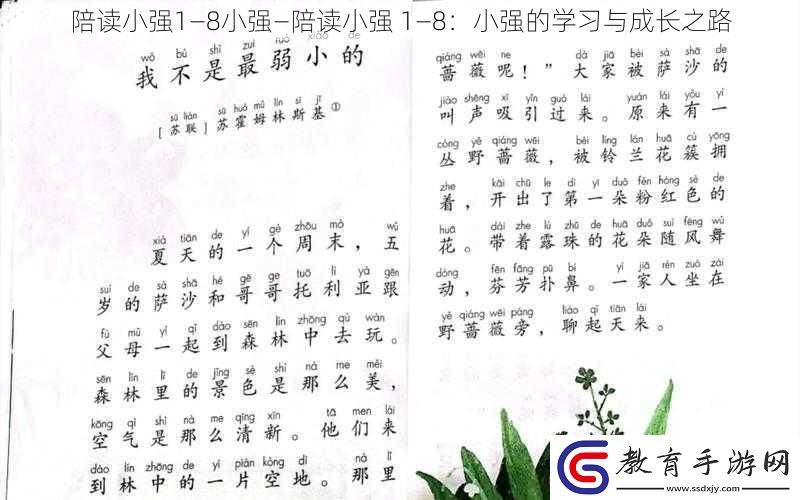 陪读小强1—8小强—陪读小强 1—8：小强的学习与成长之路
wǒ bú shì zuì ruò xiǎo de
我不是最弱小的
sū lián sū huò mǔ lín sī jī
[苏联]苏霍姆林斯基①
xià tiān de yí gè zhōu mò wǔ
夏天的一个周末，五
suì de sà shā hé gē ge tuō lì yà gēn
岁的萨沙和哥哥托利亚跟
fù mǔ yì qǐ dào sēn lín zhōng qù wán
父母一起到森林中去玩。
sēn lín lǐ de jǐng sè shì nà me měi
森林里的景色是那么美，
kōng qì shì nà me qīng xīn tā men lái
空气是那么清新。他们来
dào lín zhōng de yí piàn kòng dì nà lǐ
到林中的一片空地。那里
qiáng wēi ne dà jiā bèi sà shā de
蔷薇呢！”大家被萨沙的
jiào shēng xī yǐn guò lái yuán lái yǒu yì
叫声吸引过来。原来有一
cóng yě qiáng wēi bèi líng lán huā cù yōng
丛野蔷薇，被铃兰花簇拥
zhe kāi chū le dì yī duǒ fěn hóng sè de
着，开出了第一朵粉红色的
huā dài zhe lù zhū de huā duǒ suí fēng wǔ
花。带着露珠的花朵随风舞
dòng fēn fāng pū bí yì jiā rén zuò zài
动，芬芳扑鼻。一家人坐在
yě qiáng wēi páng liáo qǐ tiān lái
野蔷薇旁，聊起天来。
教育手游网
www.ssdxjy.com